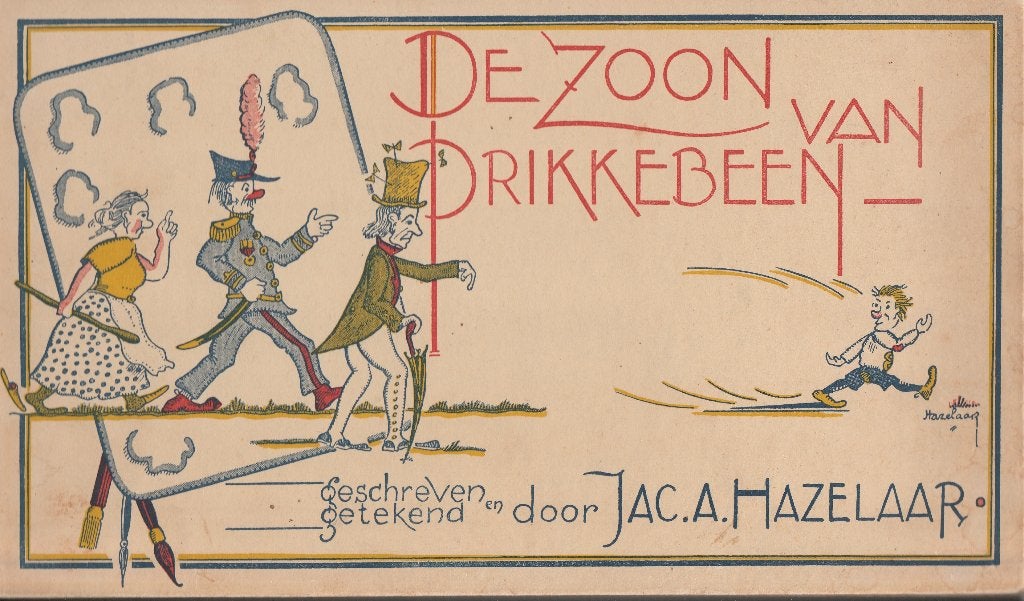 DE ZOON
VAN
PRIKKEBEEN
geschreven
getekend en door JAC. A. HAZELAAR.
Hazelaar